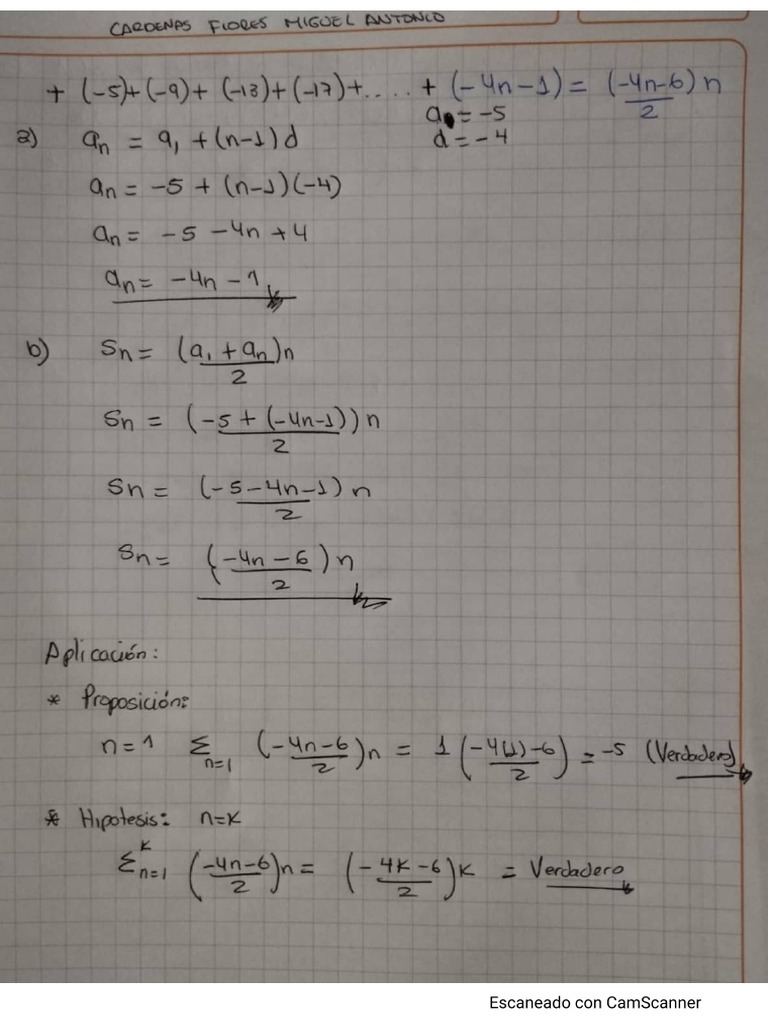 CARDENAS FLORES MIGUEL ANTONIO
+ (-5)+(-9)+ (-13)+(-17)+..... + (-4n-1) = (-4n-6) n / 2
a = -5
d = -4
a) an = a1 + (n-1)d
an = -5 + (n-1)(-4)
an = -5 -4n +4
an = -4n -1
b) Sn = (a1 + an)n / 2
Sn = (-5 + (-4n-1)) n / 2
Sn = (-5-4n-1) n / 2
Sn = (-4n-6) n / 2
Aplicación:
* Proposición:
n=1 Σ n=1 (-4n-6 / 2)n = 1 (-4(1)-6 / 2) = -5 (Verdadero)
* Hipotesis: n=K
Σ K n=1 (-4n-6 / 2)n = (-4K-6 / 2)K = Verdadero
Escaneado con CamScanner